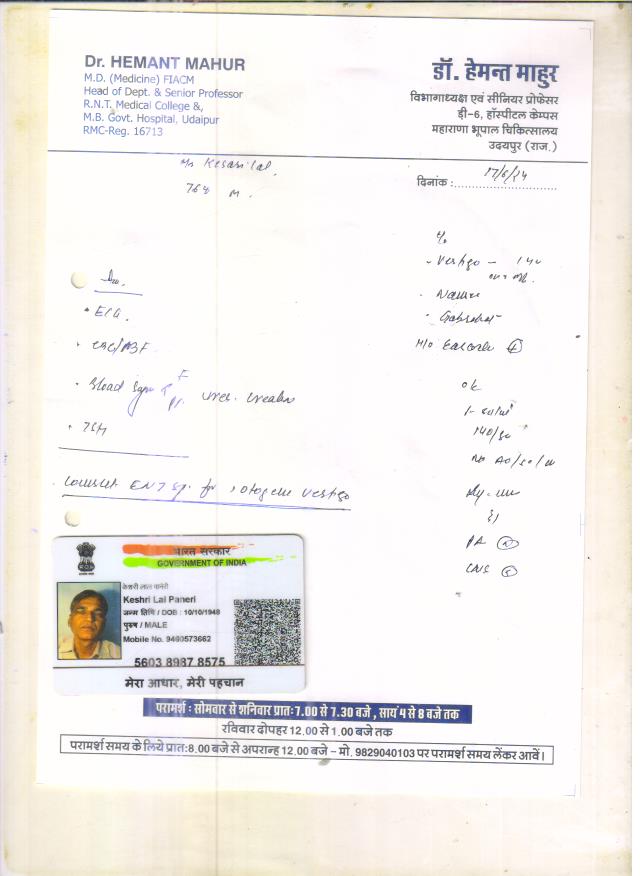 Dr. HEMANT MAHUR
M.D. (Medicine) FIACM
Head of Dept. & Senior Professor
R.N.T. Medical College &,
M.B. Govt. Hospital, Udaipur
RMC-Reg. 16713
डॉ. हेमन्त माहुर
विभागाध्यक्ष एवं सीनियर प्रोफेसर
डी-6, हॉस्पीटल केम्पस
महाराणा भूपाल चिकित्सालय
उदयपुर (राज.)
Kesarilal
76 M.
दिनांक : 17/6/24
- Vertigo -
Nausea
Gabrahat
140/90
PA
CNS
• ECG.
• CBC/
• Blood Sugar F
• TSH
Consult ENT for otogenic vertigo
भारत सरकार
GOVERNMENT OF INDIA
केशरी लाल पानेरी
Keshri Lal Paneri
जन्म तिथि / DOB : 10/10/1948
पुरुष / MALE
Mobile No. 9460573662
5603 8987 8575
मेरा आधार, मेरी पहचान
परामर्श : सोमवार से शनिवार प्रातः 7.00 से 7.30 बजे , सायं 4 से 8 बजे तक
रविवार दोपहर 12.00 से 1.00 बजे तक
परामर्श समय के लिये प्रातः 8.00 बजे से अपरान्ह 12.00 बजे - मो. 9829040103 पर परामर्श समय लेंकर आवें।